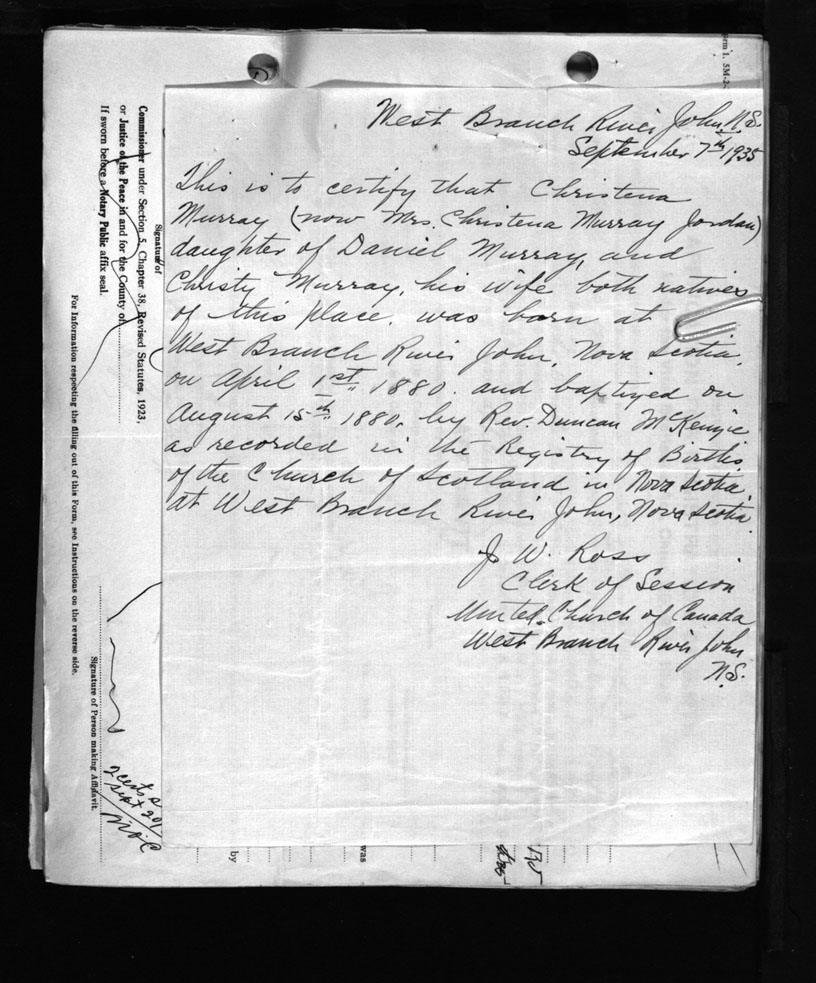 West Branch River John, N.S.
September 7th 1935
This is to certify that Christena
Murray (now Mrs. Christena Murray Jordan)
daughter of Daniel Murray, and
Christy Murray, his wife both natives
of this place. was born at
West Branch River John, Nova Scotia,
on April 1st 1880. and baptized on
August 15th 1880, by Rev. Duncan McKenzie
as recorded in the Registry of Births
of the Church of Scotland in Nova Scotia,
at West Branch River John, Nova Scotia
J W. Ross
Clerk of Session
United Church of Canada
West Branch River John
N.S.
Signature of
Commissioner under Section 5, Chapter 38, Revised Statutes, 1923,
or Justice of the Peace in and for the County of
If sworn before a Notary Public affix seal.
For Information respecting the filling out of this Form, see Instructions on the reverse side.
Signature of Person making Affidavit.
2 certs
Sept 20/
by
was